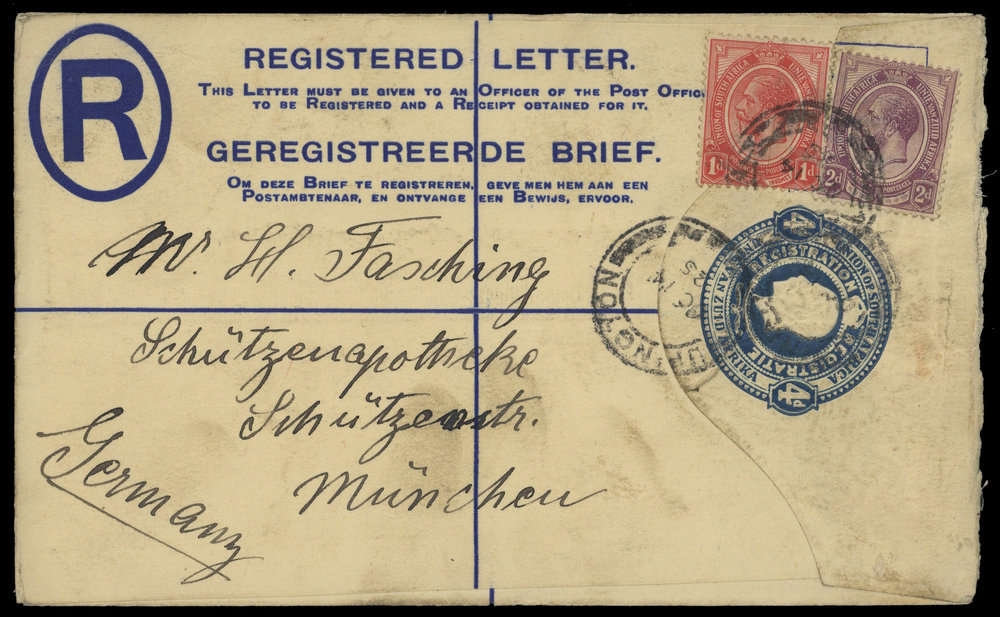 R
REGISTERED LETTER.
THIS LETTER MUST BE GIVEN TO AN OFFICER OF THE POST OFFIC
TO BE REGISTERED AND A RECEIPT OBTAINED FOR IT.
GEREGISTREERDE BRIEF.
OM DEZE BRIEF TE REGISTREREN, GEVE MEN HEM AAN EEN
POSTAMBTENAAR, EN ONTVANGE EEN BEWIJS, ERVOOR.
UNION OF SOUTH AFRICA
1d 1d
UNIE VAN ZUID AFRIKA
2d 2d
4d
REGISTRATION
UNION OF SOUTH AFRICA
REGISTRATIE
4d
Mr H. Fasching
Schützenapotheke
Schützenstr.
München
Germany